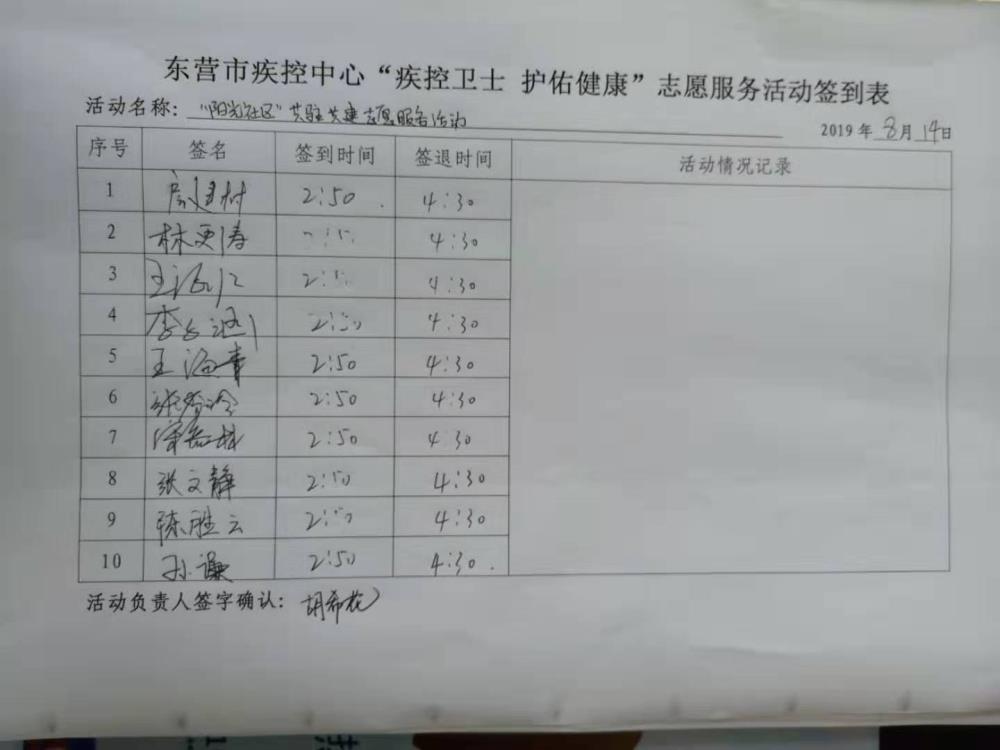 东营市疾控中心“疾控卫士 护佑健康”志愿服务活动签到表
活动名称：“阳光社区”共驻共建志愿服务活动
2019年8月14日
序号 签名 签到时间 签退时间 活动情况记录
1 2:50 4:30
2 林更涛 4:30
3 4:30
4 2:50 4:30
5 王海青 2:50 4:30
6 2:50 4:30
7 2:50 4:30
8 张文静 2:50 4:30
9 陈胜云 2:50 4:30
10 孙谦 2:50 4:30
活动负责人签字确认：胡希花